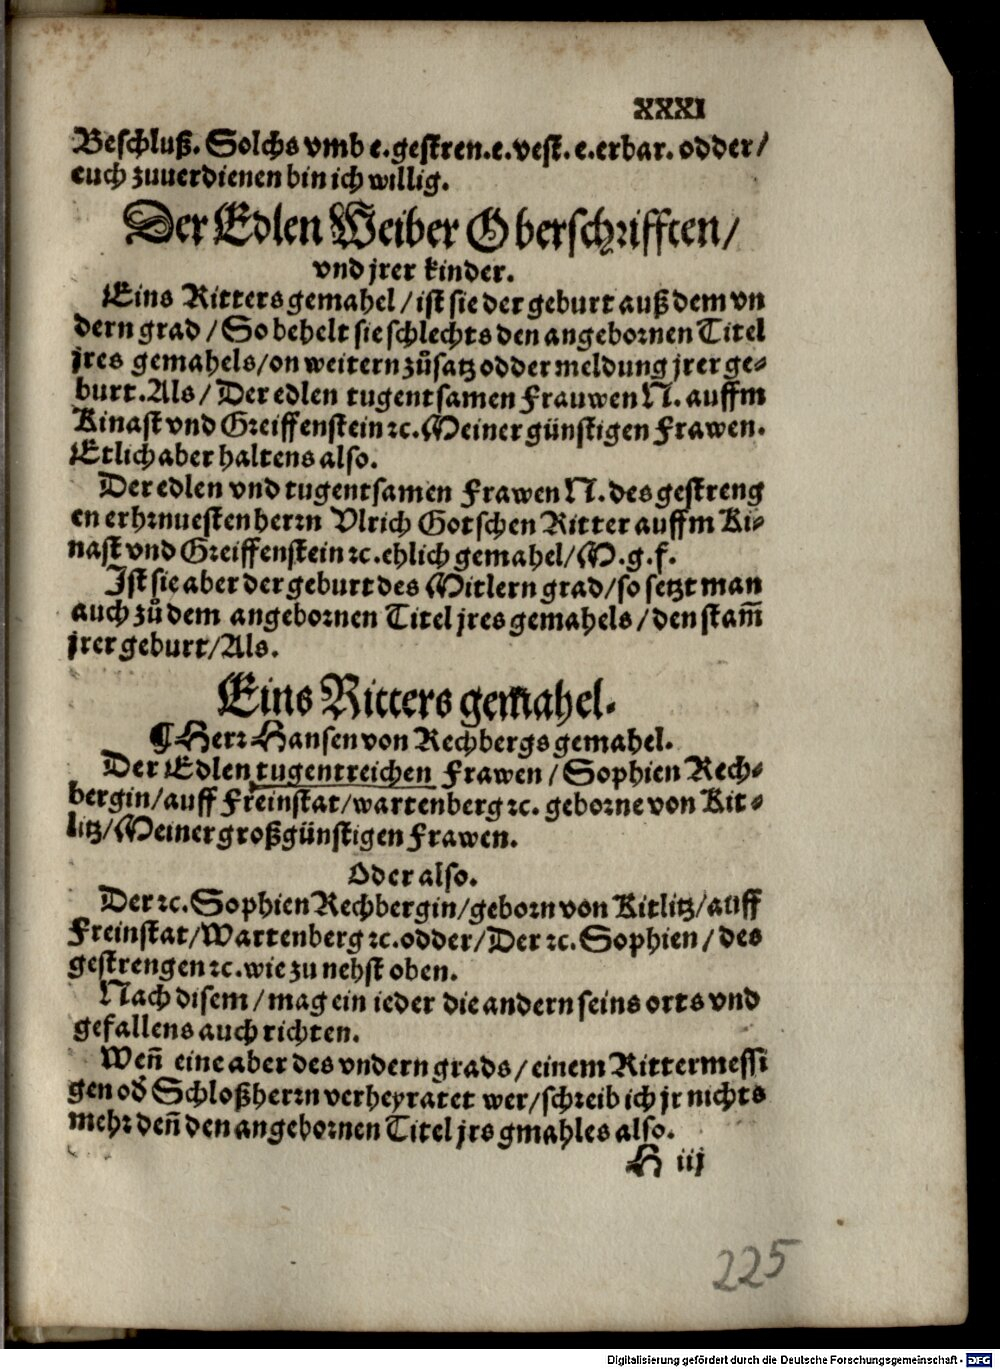 XXXI
Beschluß. Solchs vmb e.gestren.e.vest.e.erbar. odder/
euch zuuerdienen bin ich willig.
Der Edlen Weiber Oberschrifften/
vnd jrer kinder.
Eins Ritters gemahel/ist sie der geburt auß dem vn
dern grad/So behelt sie schlechts den angebornen Titel
jres gemahels/on weitern zůsatz odder meldung jrer ge⸗
burt.Als/Der edlen tugentsamen Frauwen N. auffm
Kinast vnd Greiffenstein ꝛc.Meiner günstigen Frawen.
Etlich aber haltens also.
Der edlen vnd tugentsamen Frawen N. des gestreng
en erhrnuesten herrn Vlrich Gotschen Ritter auffm Ki⸗
nast vnd Greiffenstein ꝛc.ehlich gemahel/M.g.f.
Ist sie aber der geburt des Mitlern grad/so setzt man
auch zů dem angebornen Titel jres gemahels/den stam̄
jrer geburt/Als.
Eins Ritters gemahel.
¶Herr Hansen von Rechbergs gemahel.
Der Edlen tugentreichen Frawen/Sophien Rech⸗
bergin/auff Freinstat/wartenberg ꝛc. geborne von Kit⸗
litz/Meiner großgünstigen Frawen.
Oder also.
Der ꝛc.Sophien Rechbergin/geborn von Kitlitz/auff
Freinstat/Wartenberg ꝛc.odder/Der ꝛc.Sophien/des
gestrengen ꝛc.wie zu nehst oben.
Nach disem/mag ein ieder die andern seins orts vnd
gefallens auch richten.
Wen̄ eine aber des vndern grads/einem Rittermessi
gen od̕ Schloßherrn verheyratet wer/schreib ich jr nichts
mehr den̄ den angebornen Titel jrs gmahles also.
H iij
225
Digitalisierung gefördert durch die Deutsche Forschungsgemeinschaft - DFG